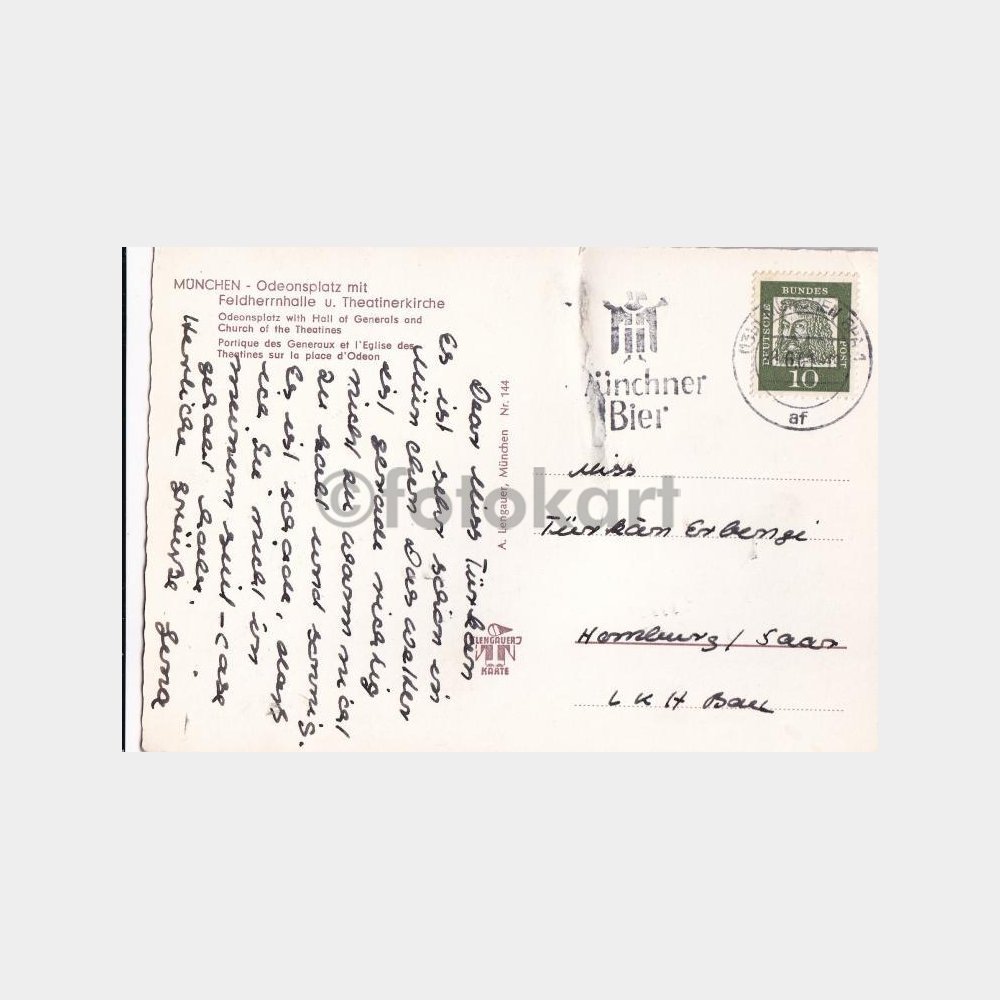 MÜNCHEN - Odeonsplatz mit
Feldherrnhalle u. Theatinerkirche
Odeonsplatz with Hall of Generals and
Church of the Theatines
Portique des Generaux et l'Eglise des
Theatines sur la place d'Odeon
Dear Miss Türkan
Es ist sehr schön in
München Das Wetter
ist gerade richtig
nicht zu warm nicht
zu kalt und sonnig.
Es ist schade, daß
ich Sie nicht in
meinem suit-case
gehabt habe.
Herzliche Grüße
A. Lengauer, München Nr. 144
LENGAUER
KARTE
Münchner
Bier
DEUTSCHE
BUNDES
POST
10
af
Miss
Türkan Erbengi
Homburg / Saar
L K H Bau
©fotokart